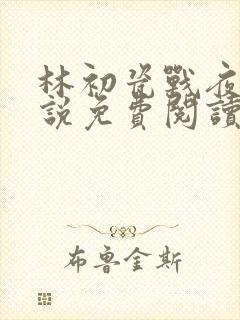 林初瓷戰夜
說免費閱讀
布魯金斯